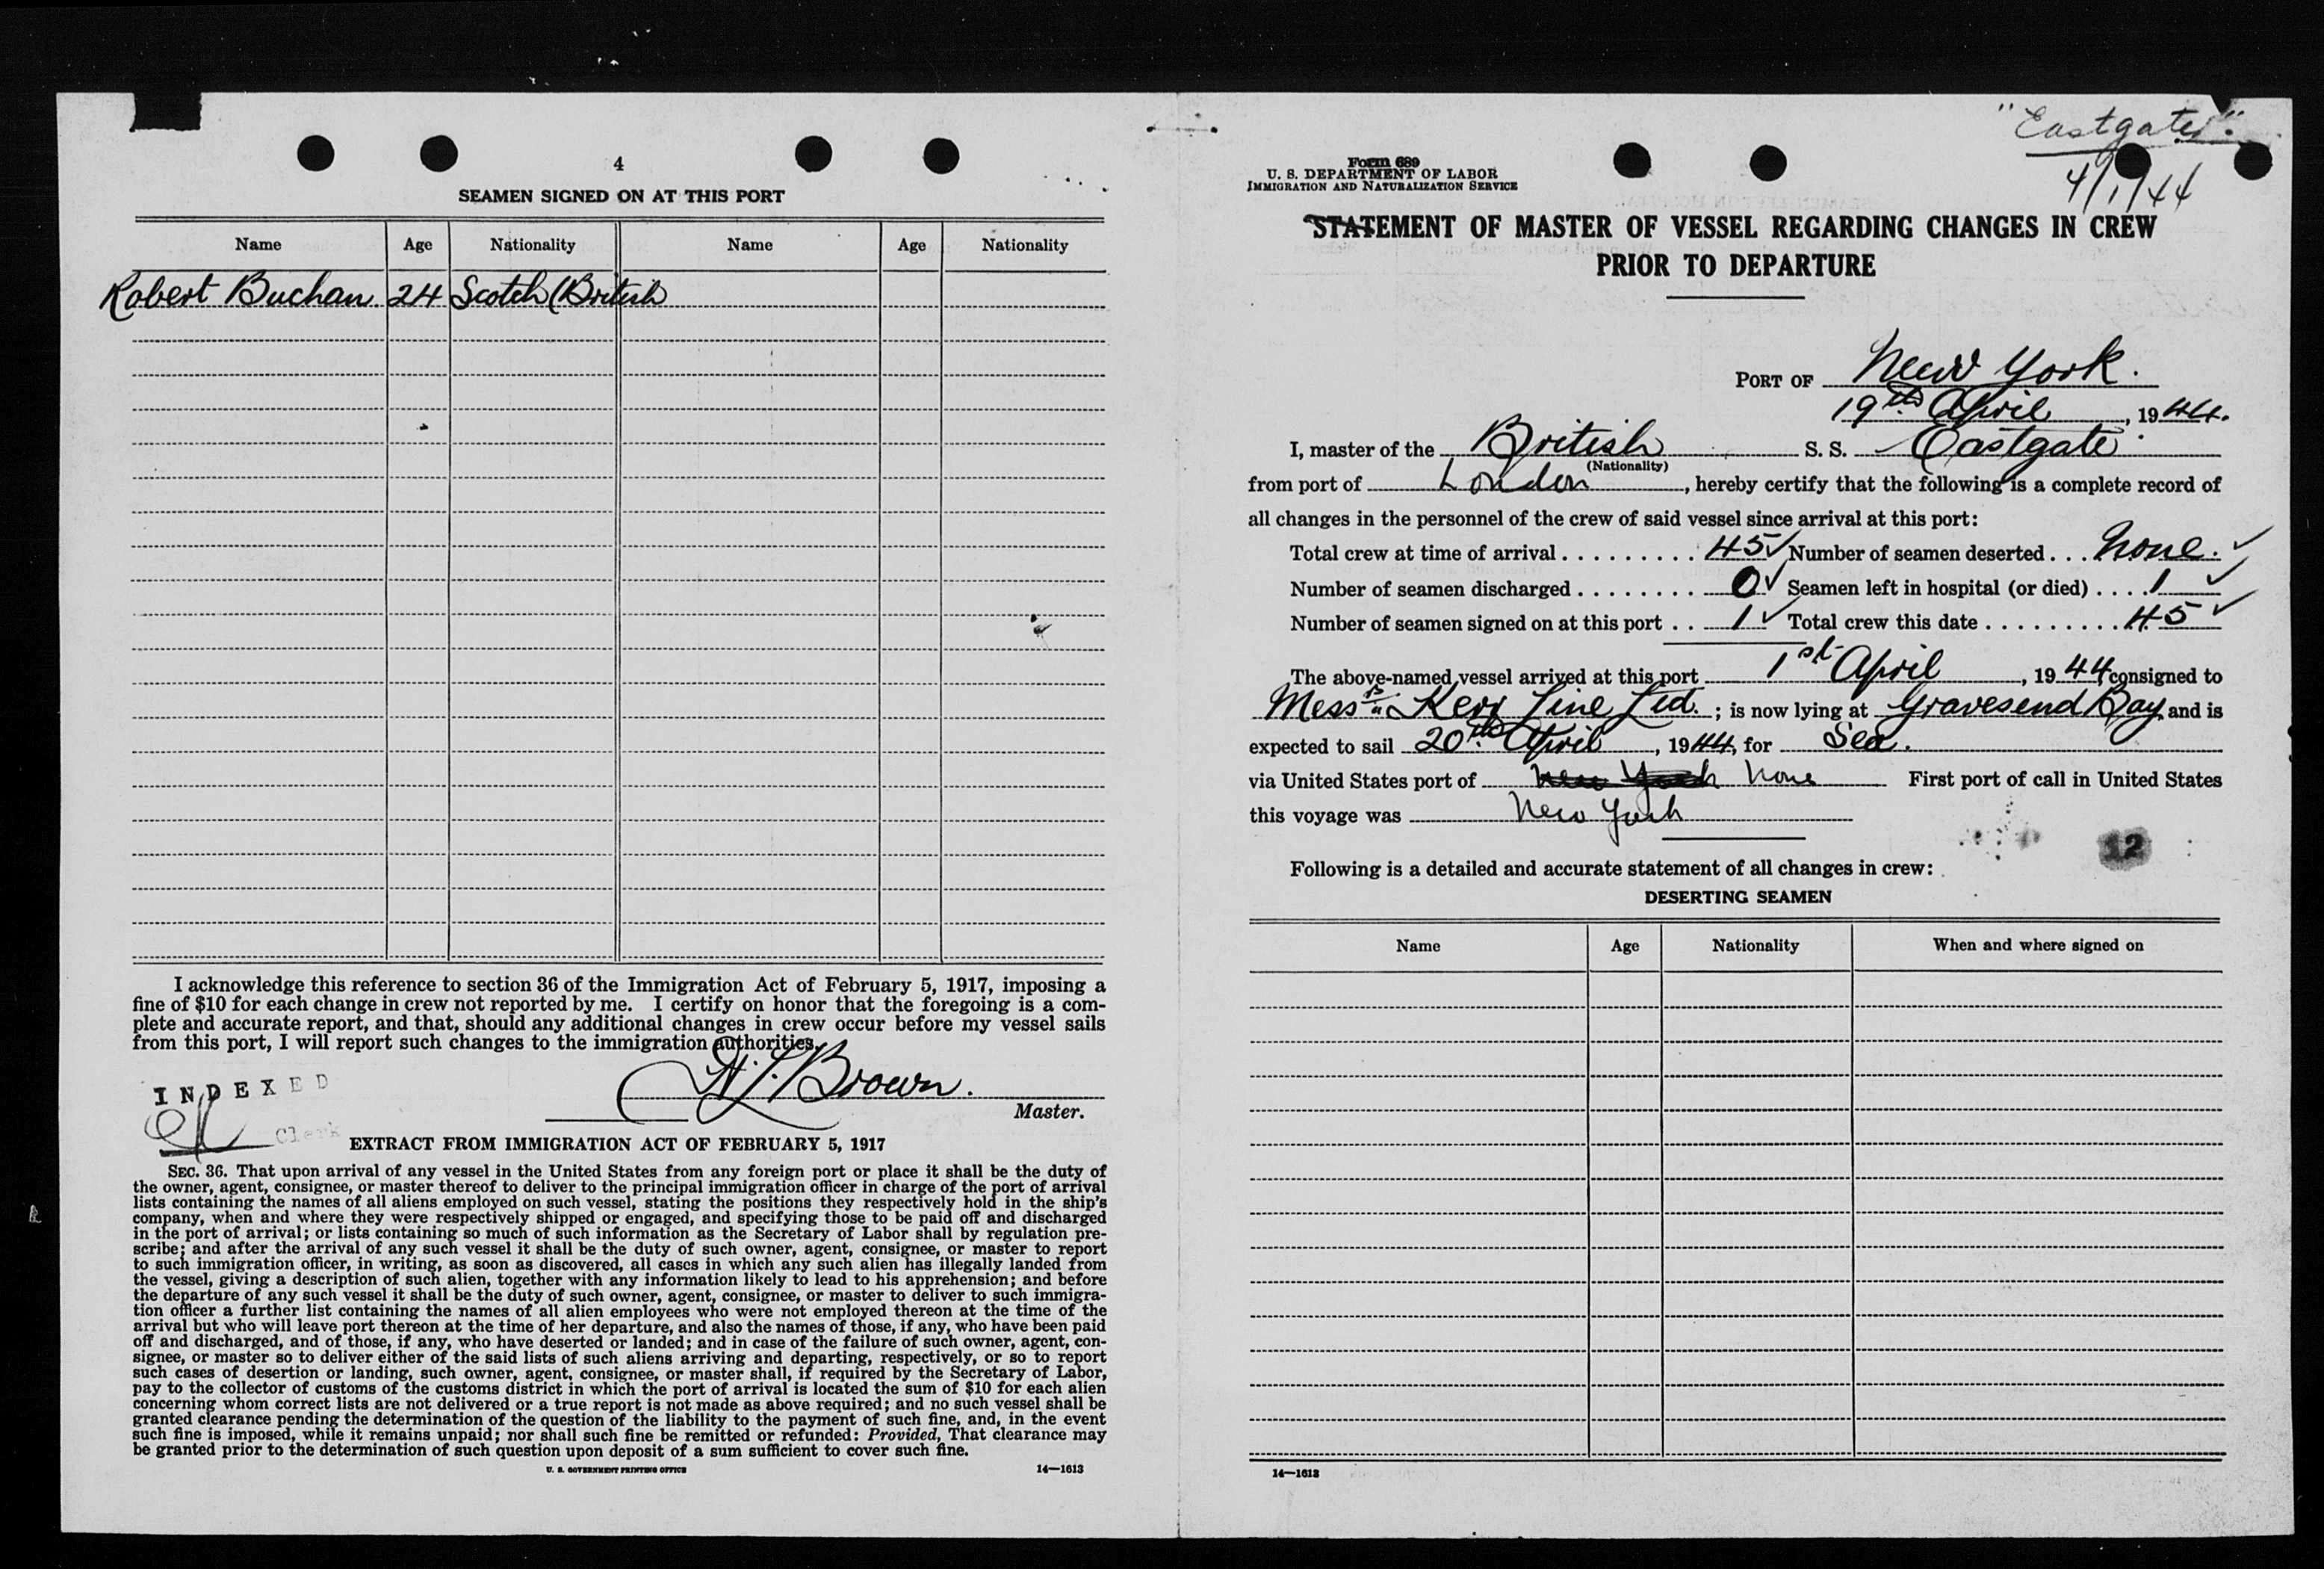 4
SEAMEN SIGNED ON AT THIS PORT
Name Age Nationality Name Age Nationality
Robert Buchan 24 Scotch (British)
I acknowledge this reference to section 36 of the Immigration Act of February 5, 1917, imposing a
fine of $10 for each change in crew not reported by me. I certify on honor that the foregoing is a com-
plete and accurate report, and that, should any additional changes in crew occur before my vessel sails
from this port, I will report such changes to the immigration authorities.
Brown.
Master.
INDEXED
Clerk
EXTRACT FROM IMMIGRATION ACT OF FEBRUARY 5, 1917
SEC. 36. That upon arrival of any vessel in the United States from any foreign port or place it shall be the duty of
the owner, agent, consignee, or master thereof to deliver to the principal immigration officer in charge of the port of arrival
lists containing the names of all aliens employed on such vessel, stating the positions they respectively hold in the ship's
company, when and where they were respectively shipped or engaged, and specifying those to be paid off and discharged
in the port of arrival; or lists containing so much of such information as the Secretary of Labor shall by regulation pre-
scribe; and after the arrival of any such vessel it shall be the duty of such owner, agent, consignee, or master to report
to such immigration officer, in writing, as soon as discovered, all cases in which any such alien has illegally landed from
the vessel, giving a description of such alien, together with any information likely to lead to his apprehension; and before
the departure of any such vessel it shall be the duty of such owner, agent, consignee, or master to deliver to such immigra-
tion officer a further list containing the names of all alien employees who were not employed thereon at the time of the
arrival but who will leave port thereon at the time of her departure, and also the names of those, if any, who have been paid
off and discharged, and of those, if any, who have deserted or landed; and in case of the failure of such owner, agent, con-
signee, or master so to deliver either of the said lists of such aliens arriving and departing, respectively, or so to report
such cases of desertion or landing, such owner, agent, consignee, or master shall, if required by the Secretary of Labor,
pay to the collector of customs of the customs district in which the port of arrival is located the sum of $10 for each alien
concerning whom correct lists are not delivered or a true report is not made as above required; and no such vessel shall be
granted clearance pending the determination of the question of the liability to the payment of such fine, and, in the event
such fine is imposed, while it remains unpaid; nor shall such fine be remitted or refunded: Provided, That clearance may
be granted prior to the determination of such question upon deposit of a sum sufficient to cover such fine.
U. S. GOVERNMENT PRINTING OFFICE 14—1613
"Eastgate".
4/1/44
Form 689
U. S. DEPARTMENT OF LABOR
IMMIGRATION AND NATURALIZATION SERVICE
STATEMENT OF MASTER OF VESSEL REGARDING CHANGES IN CREW
PRIOR TO DEPARTURE
PORT OF New York.
19th April, 1944.
I, master of the British S. S. Eastgate.
(Nationality)
from port of London, hereby certify that the following is a complete record of
all changes in the personnel of the crew of said vessel since arrival at this port:
Total crew at time of arrival 45 Number of seamen deserted None.
Number of seamen discharged 0 Seamen left in hospital (or died) 1
Number of seamen signed on at this port 1 Total crew this date 45
The above-named vessel arrived at this port 1st April, 1944, consigned to
Messrs Kerr Line Ltd.; is now lying at Gravesend Bay and is
expected to sail 20th April, 1944, for Sea.
via United States port of New York None First port of call in United States
this voyage was New York
12
Following is a detailed and accurate statement of all changes in crew:
DESERTING SEAMEN
Name Age Nationality When and where signed on
14—1613